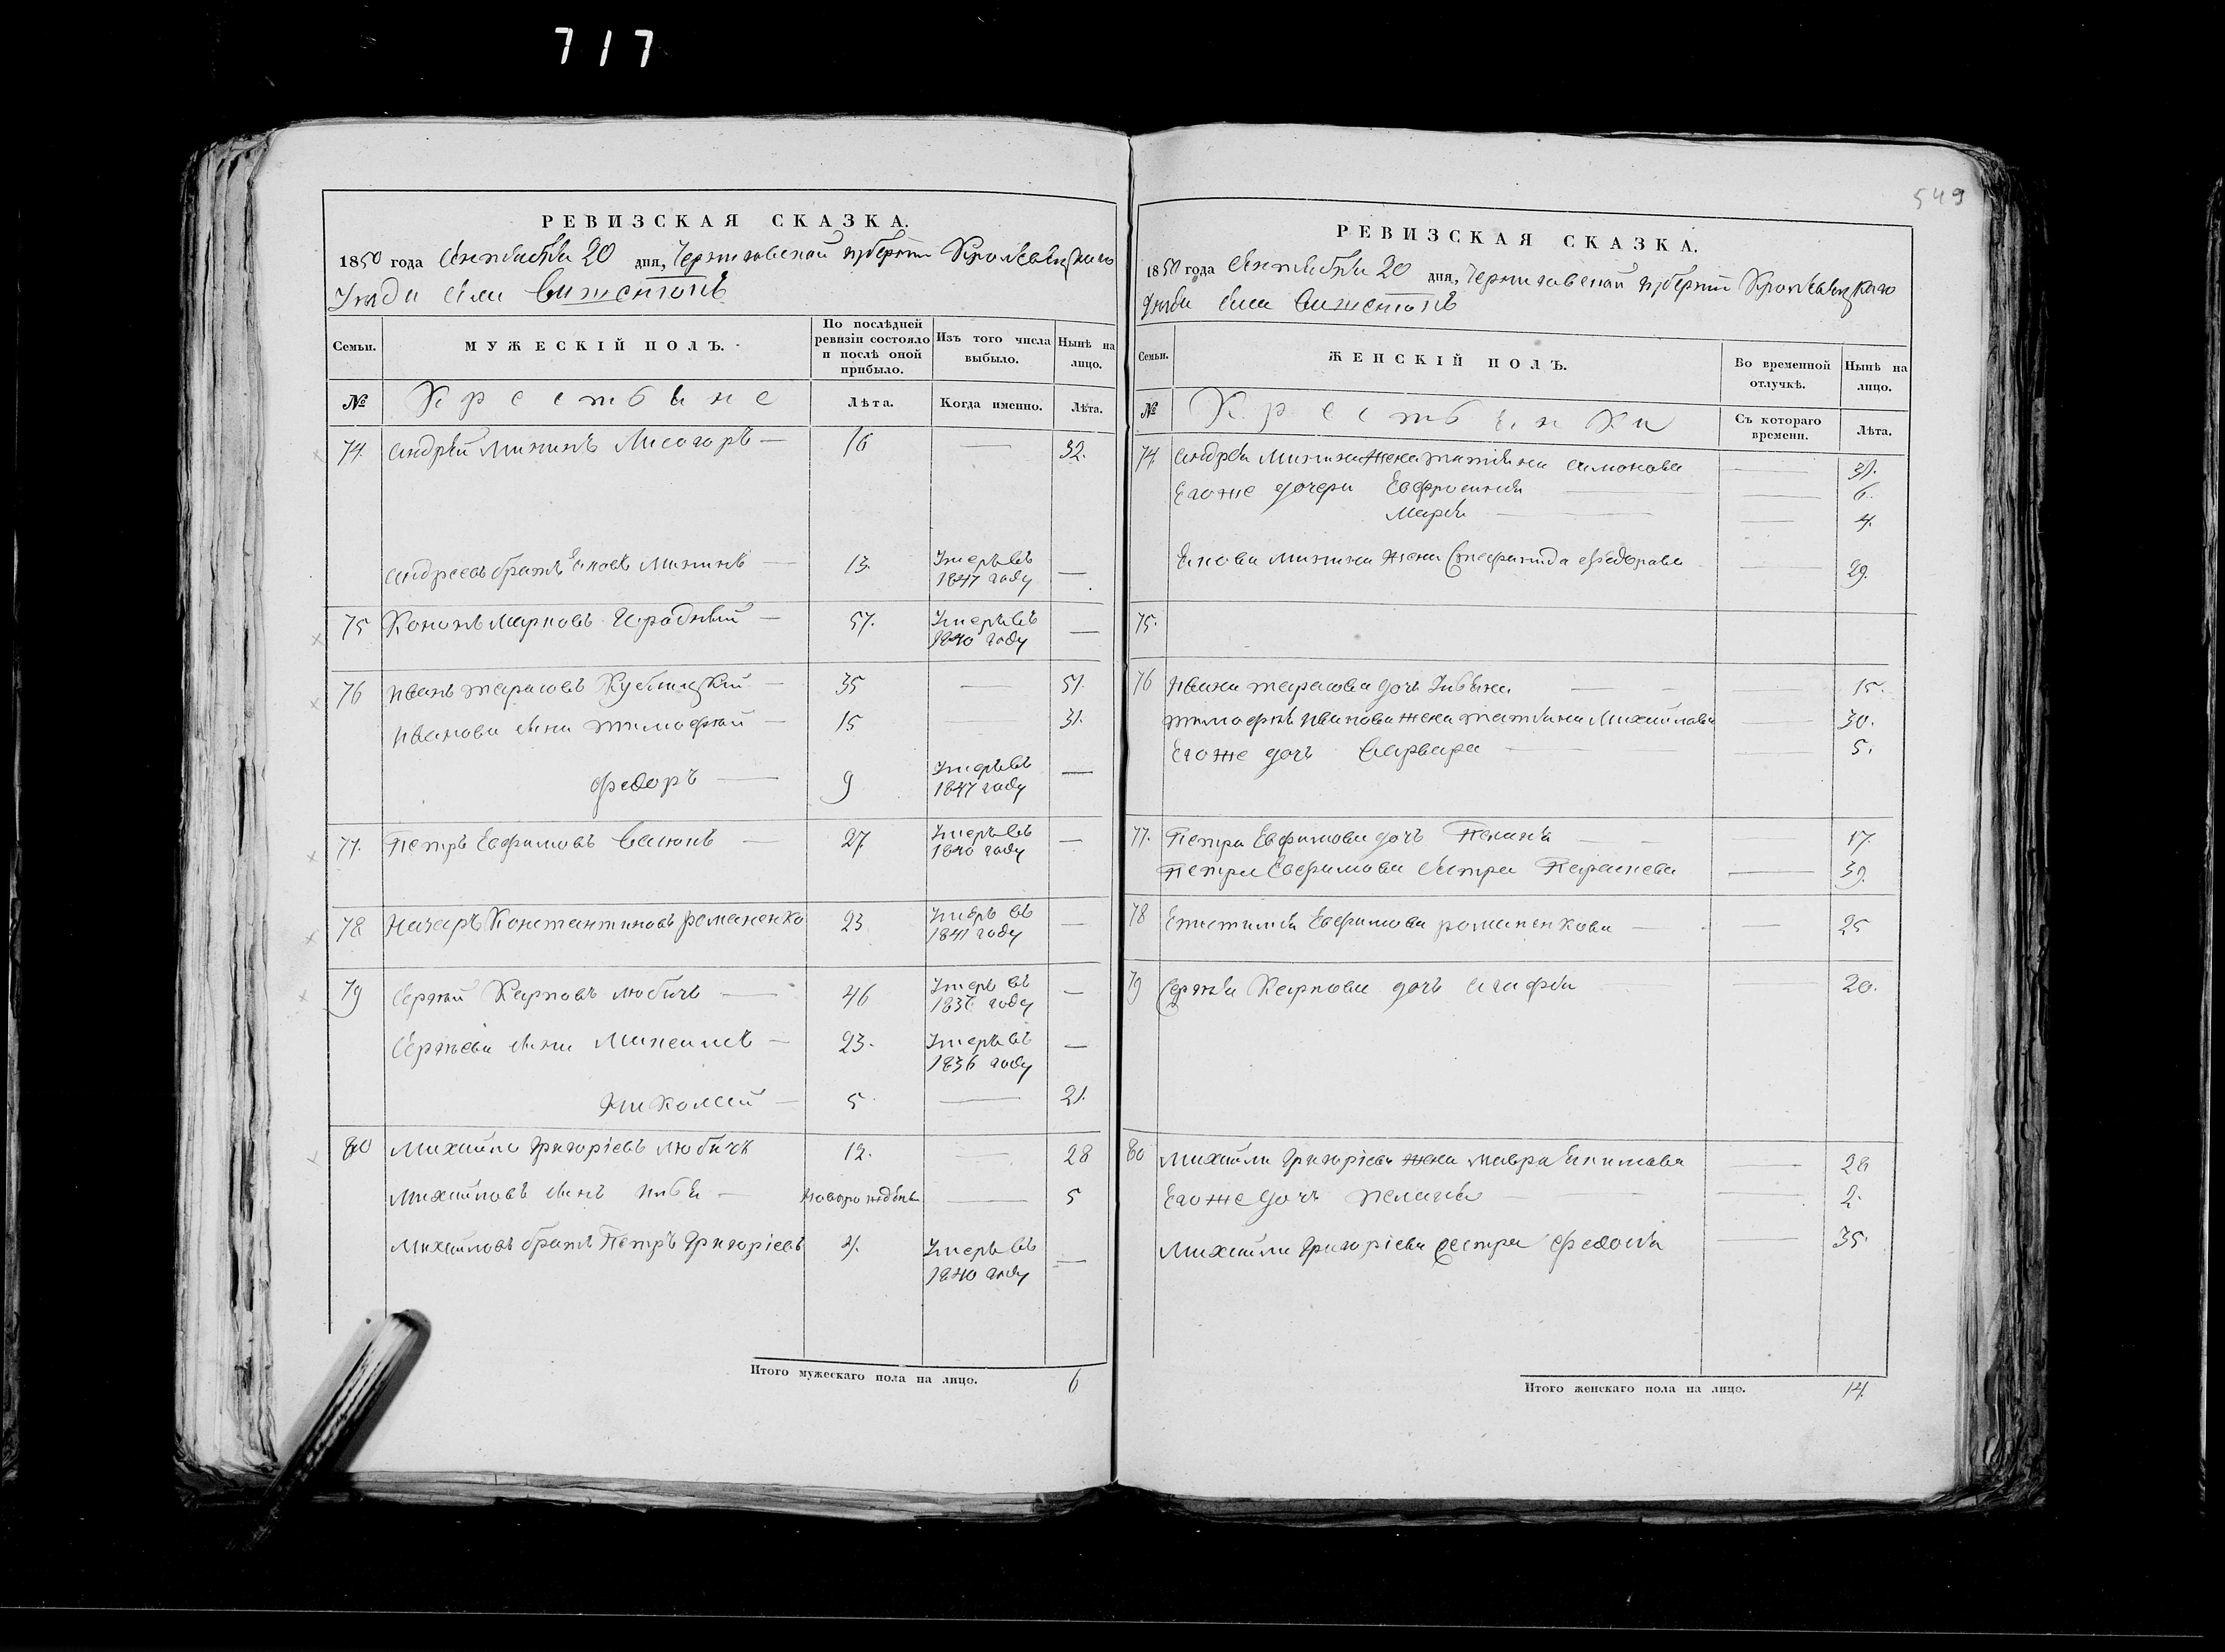 717
549
РЕВИЗСКАЯ СКАЗКА.
1850 года Сентября 20 дня, Черниговской губернiи Кролевецкаго
Уезда села
Семьи. МУЖЕСКІЙ ПОЛЪ. По послѣдней ревизіи состояло и послѣ оной прибыло. Изъ того числа выбыло. Нынѣ на лицо.
№ Крестьяне Лѣта. Когда именно. Лѣта.
74. Андрей Мининъ Лисогоръ — 16 — 32.
Андреевъ братъ Яковъ Мининъ — 13. Умеръ въ 1847 году —
75 Кононъ Марковъ — 57. Умеръ въ 1840 году —
76 Иванъ Тарасовъ Кублицкій — 35 — 51.
Ивана сыны Тимофей — 15 — 31.
Федоръ — 9 Умеръ въ 1847 году —
77. Петръ Евфимовъ Васюкъ — 27 Умеръ въ 1840 году —
78 Назаръ Константиновъ Романенко 23 Умеръ въ 1841 году —
79 Сергѣй Карповъ Любичъ — 46 Умеръ въ 1836 году —
Сергѣева сыны — 23. Умеръ въ 1836 году —
Николай — 5. — 21.
80 Михайло Григоріевъ Любичъ 12. — 28
Михайловъ сынъ Илья — новорожденъ — 5
Михайловъ братъ Петръ Григоріевъ 4. Умеръ въ 1840 году —
Итого мужескаго пола на лицо. 6
РЕВИЗСКАЯ СКАЗКА.
1850 года Сентября 20 дня, Черниговской губернiи Кролевецкаго
Уезда села
Семьи. ЖЕНСКІЙ ПОЛЪ. Во временной отлучкѣ. Нынѣ на лицо.
№ Крестьянки Съ котораго времени. Лѣта.
74 Андрея Минина жена Татьяна Симонова — 31.
Его же дочери Евфросинія — 6.
Марья — 4.
Якова Минина жена Стефанида Федорова — 29.
75.
76 Ивана Тарасова дочь Ульяна — 15.
Тимофея Иванова жена Татьяна Михайлова — 30.
Его же дочь Варвара — 5.
77. Петра Евфимова дочь — 17.
Петра Евфимова сестра Параскева — 39.
78 Епистимія Евфимова Романенкова — 25
79 Сергѣя Карпова дочь Агафья — 20.
80 Михайла Григоріева жена Мавра Екимова — 28
Его же дочь Пелагея — 2.
Михайла Григоріева сестра Федосія — 35.
Итого женскаго пола на лицо. 14.